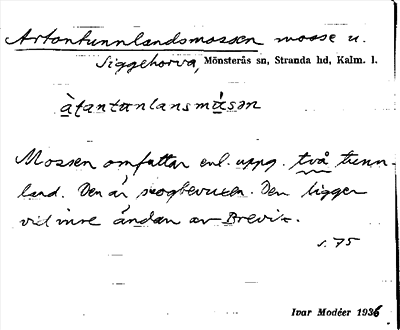 Artontunnlandsmossen mosse u.
Siggehorva, Mönsterås sn, Stranda hd, Kalm. l.
Mossen omfattar enl. uppg. två tunn-
land. Den är skogbevuxen. Den ligger
vid inre ändan av Brevik.
s. 75
Ivar Modéer 1936